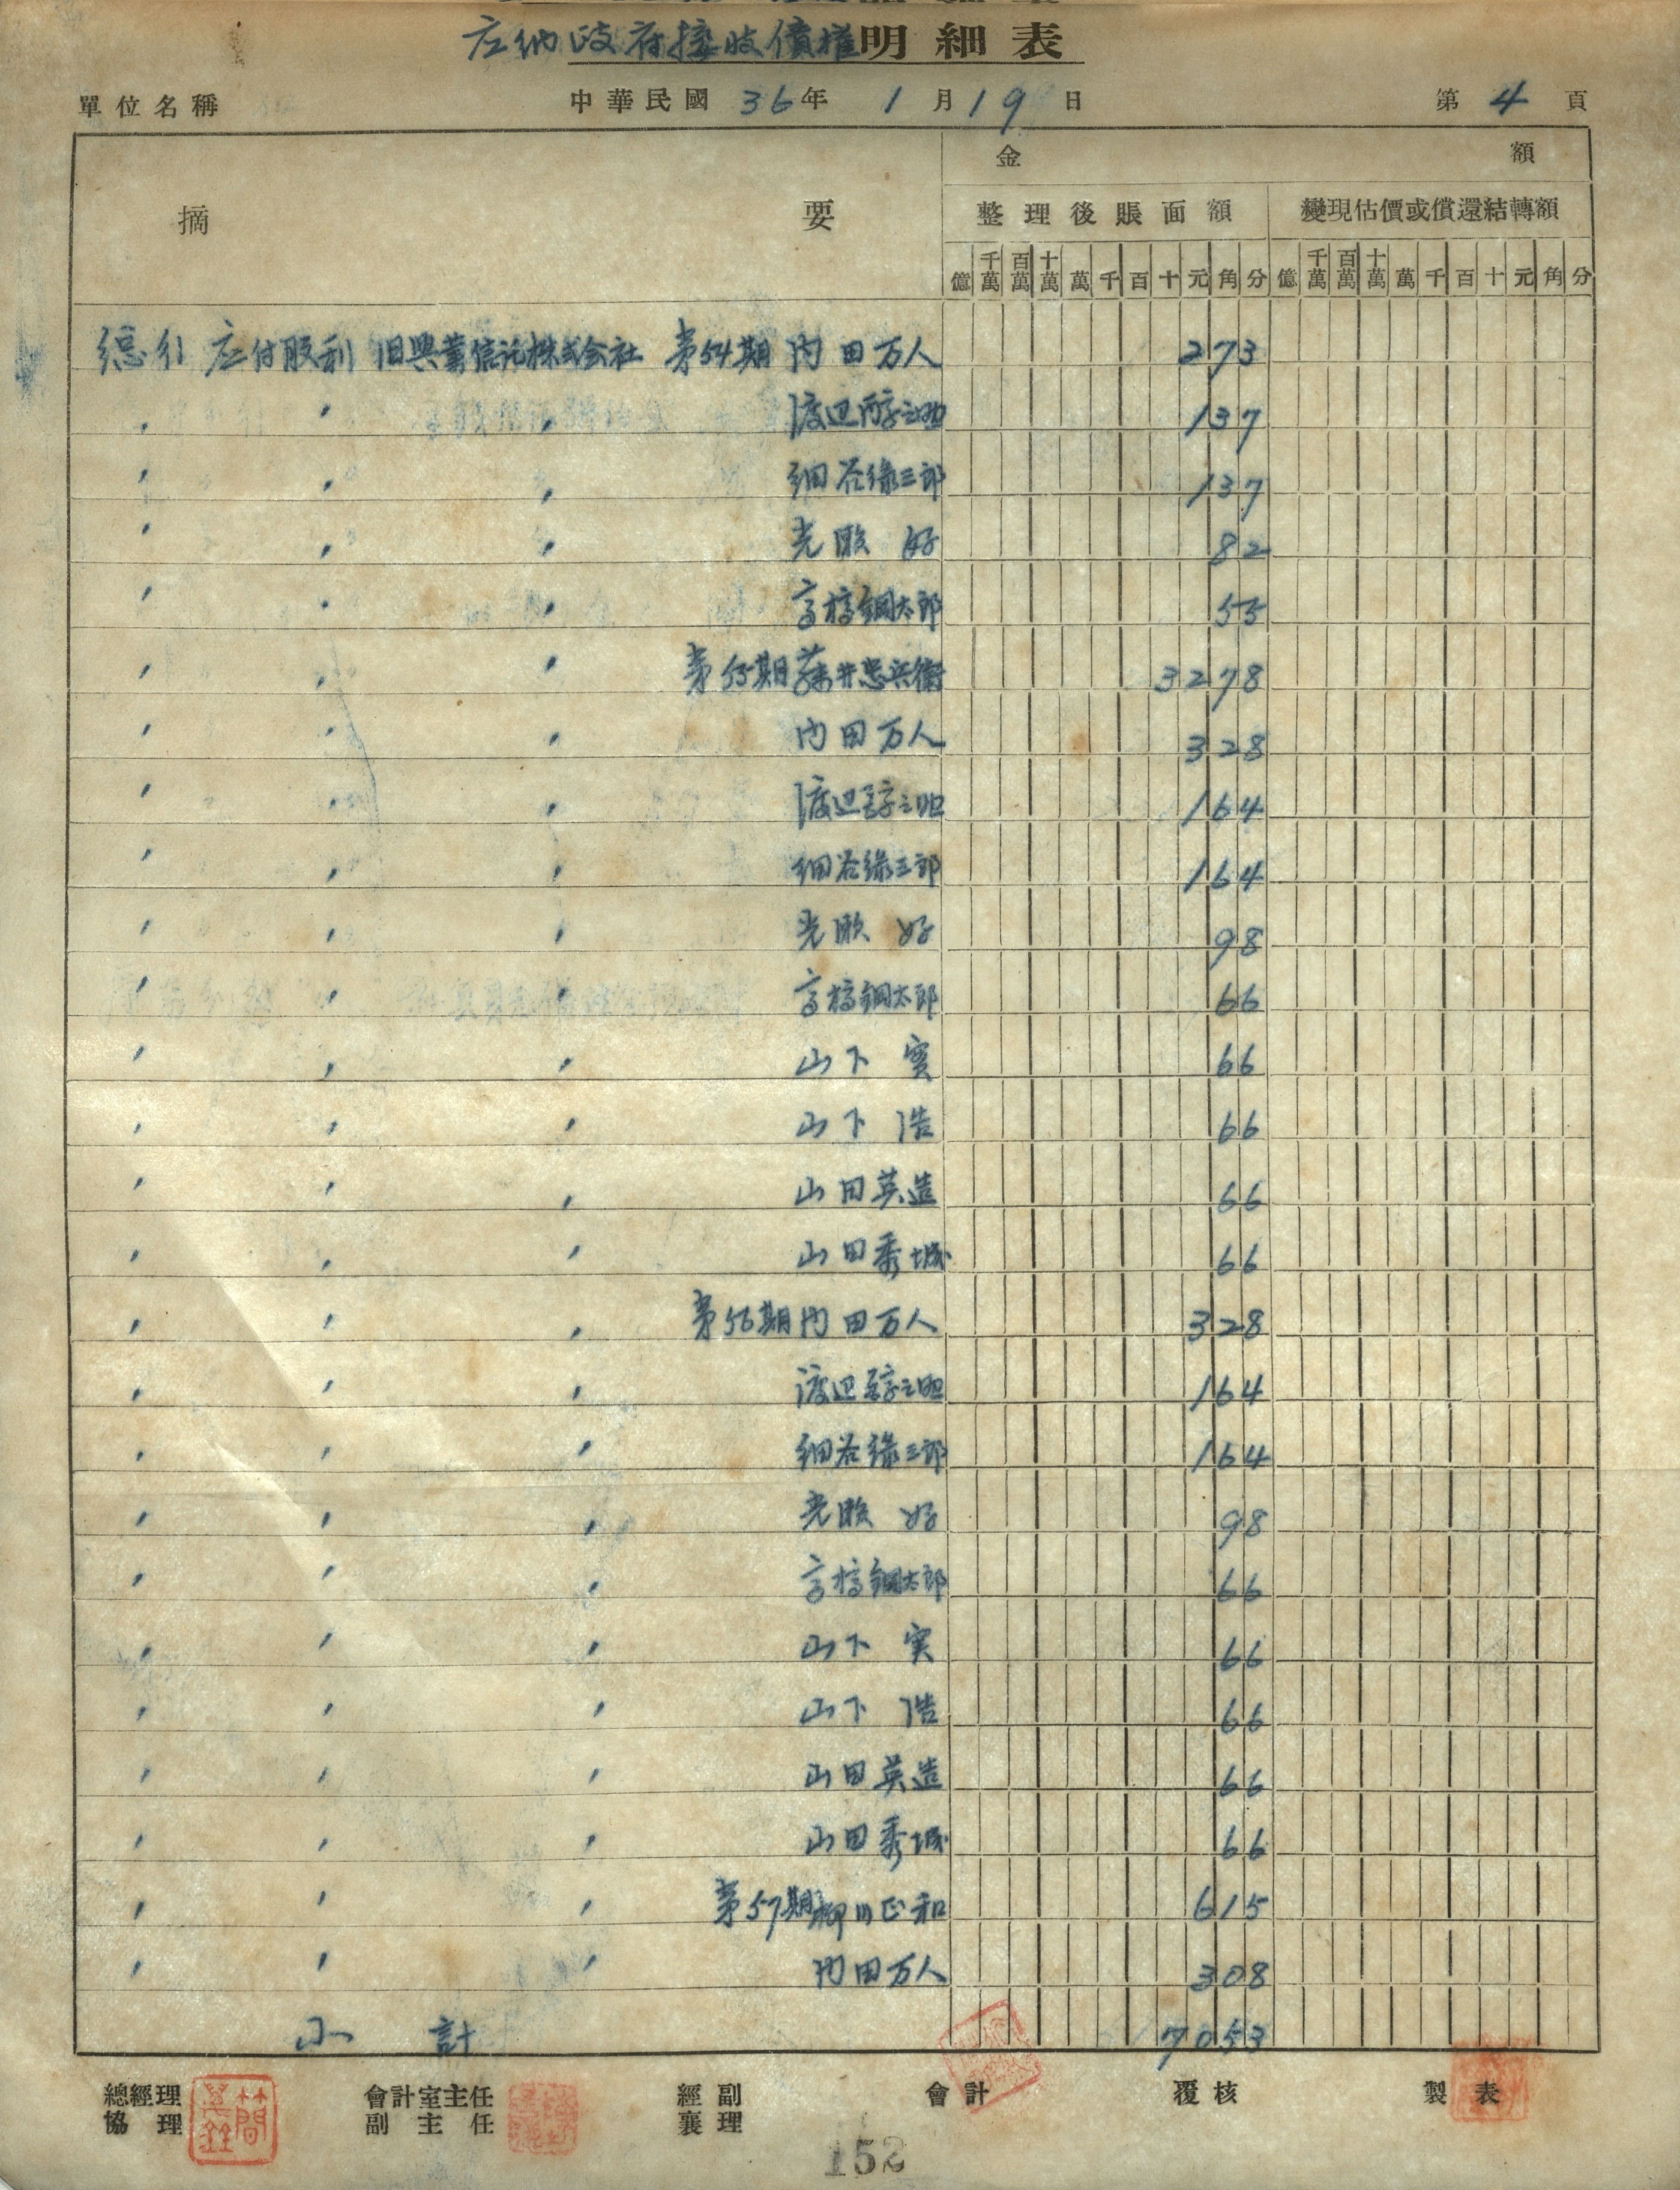 应纳政府接收債權明細表
單位名稱 中華民國 36年 1月19日 第 4 頁
摘要 金額
整理後賬面額 變現估價或償還結轉額
億 千萬 百萬 十萬 萬 千 百 十 元 角 分 億 千萬 百萬 十萬 萬 千 百 十 元 角 分
總行 应付股利 旧興業信託株式会社 第54期 内田万人 273
〃 〃 〃 渡辺 137
〃 〃 〃 細谷緑三郎 137
〃 〃 〃 光瀬 好 82
〃 〃 〃 高橋鋼太郎 55
〃 〃 〃 第55期 藤井忠兵衛 3278
〃 〃 〃 内田万人 328
〃 〃 〃 渡辺 164
〃 〃 〃 細谷緑三郎 164
〃 〃 〃 光瀬 好 98
〃 〃 〃 高橋鋼太郎 66
〃 〃 〃 山下 実 66
〃 〃 〃 山下 浩 66
〃 〃 〃 山田英造 66
〃 〃 〃 山田秀城 66
〃 〃 〃 第56期 内田万人 328
〃 〃 〃 渡辺 164
〃 〃 〃 細谷緑三郎 164
〃 〃 〃 光瀬 好 98
〃 〃 〃 高橋鋼太郎 66
〃 〃 〃 山下 実 66
〃 〃 〃 山下 浩 66
〃 〃 〃 山田英造 66
〃 〃 〃 山田秀城 66
〃 〃 〃 第57期 柳川正和 615
〃 〃 〃 内田万人 308
小計 7053
總經理 會計室主任 經副 會計 覆核 製表
協理 副主任 襄理
152